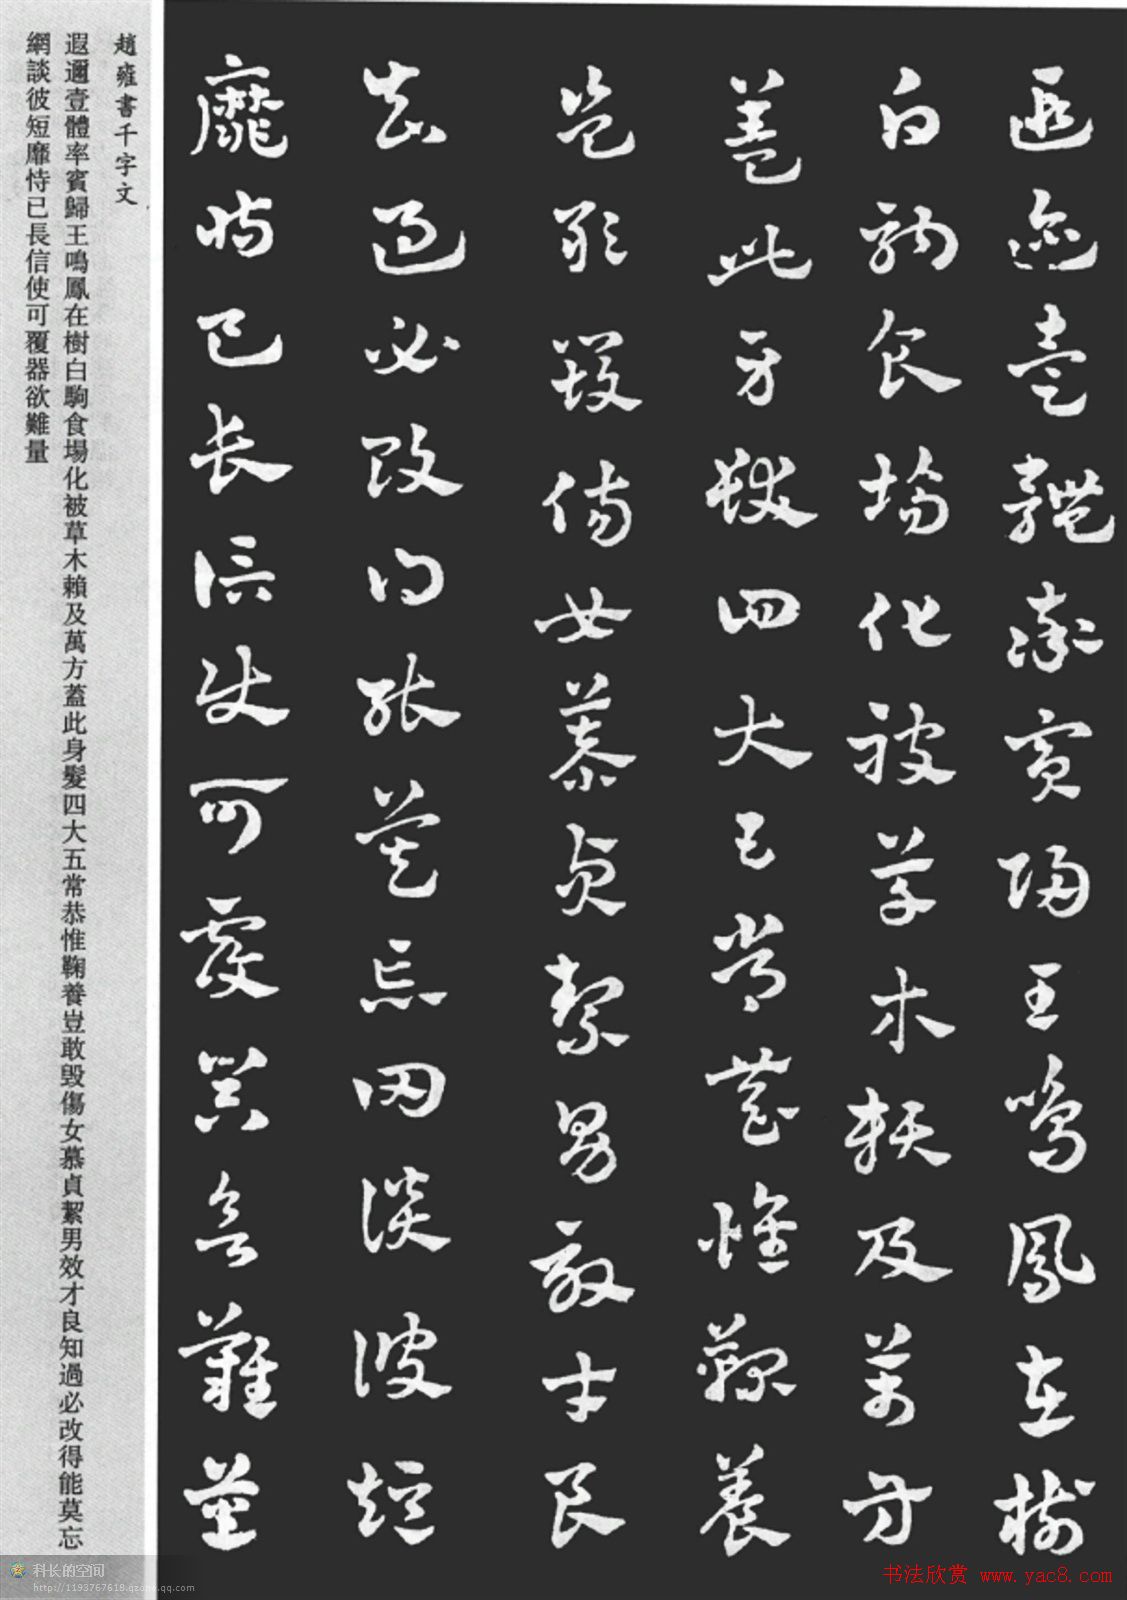 遐邇壹體率賓歸王鳴鳳在樹
白駒食場化被草木賴及萬方
蓋此身髮四大五常恭惟鞠養
豈敢毀傷女慕貞絜男效才良
知過必改得能莫忘罔談彼短
靡恃己長信使可覆器欲難量
趙雍書千字文
遐邇壹體率賓歸王鳴鳳在樹白駒食場化被草木賴及萬方蓋此身髮四大五常恭惟鞠養豈敢毀傷女慕貞絜男效才良知過必改得能莫忘
網談彼短靡恃已長信使可覆器欲難量
科长的空间
http://1193767618.qzone.qq.com
书法欣赏 www.yac8.com